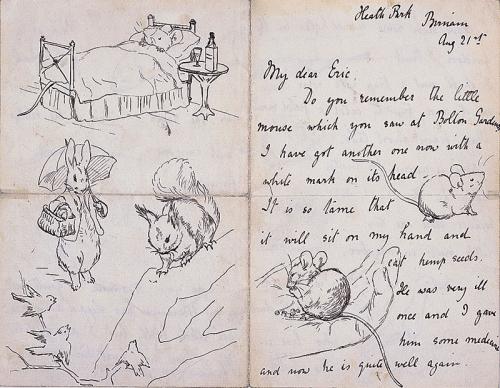 Heath Park Birnam
Aug 21st
My dear Eric.
Do you remember the little
mouse which you saw at Bolton Gardens
I have got another one now with a
white mark on its head -
It is so tame that
it will sit on my hand and
eat hemp seeds.
He was very ill
once and I gave
him some medicine
and now he is quite well again.